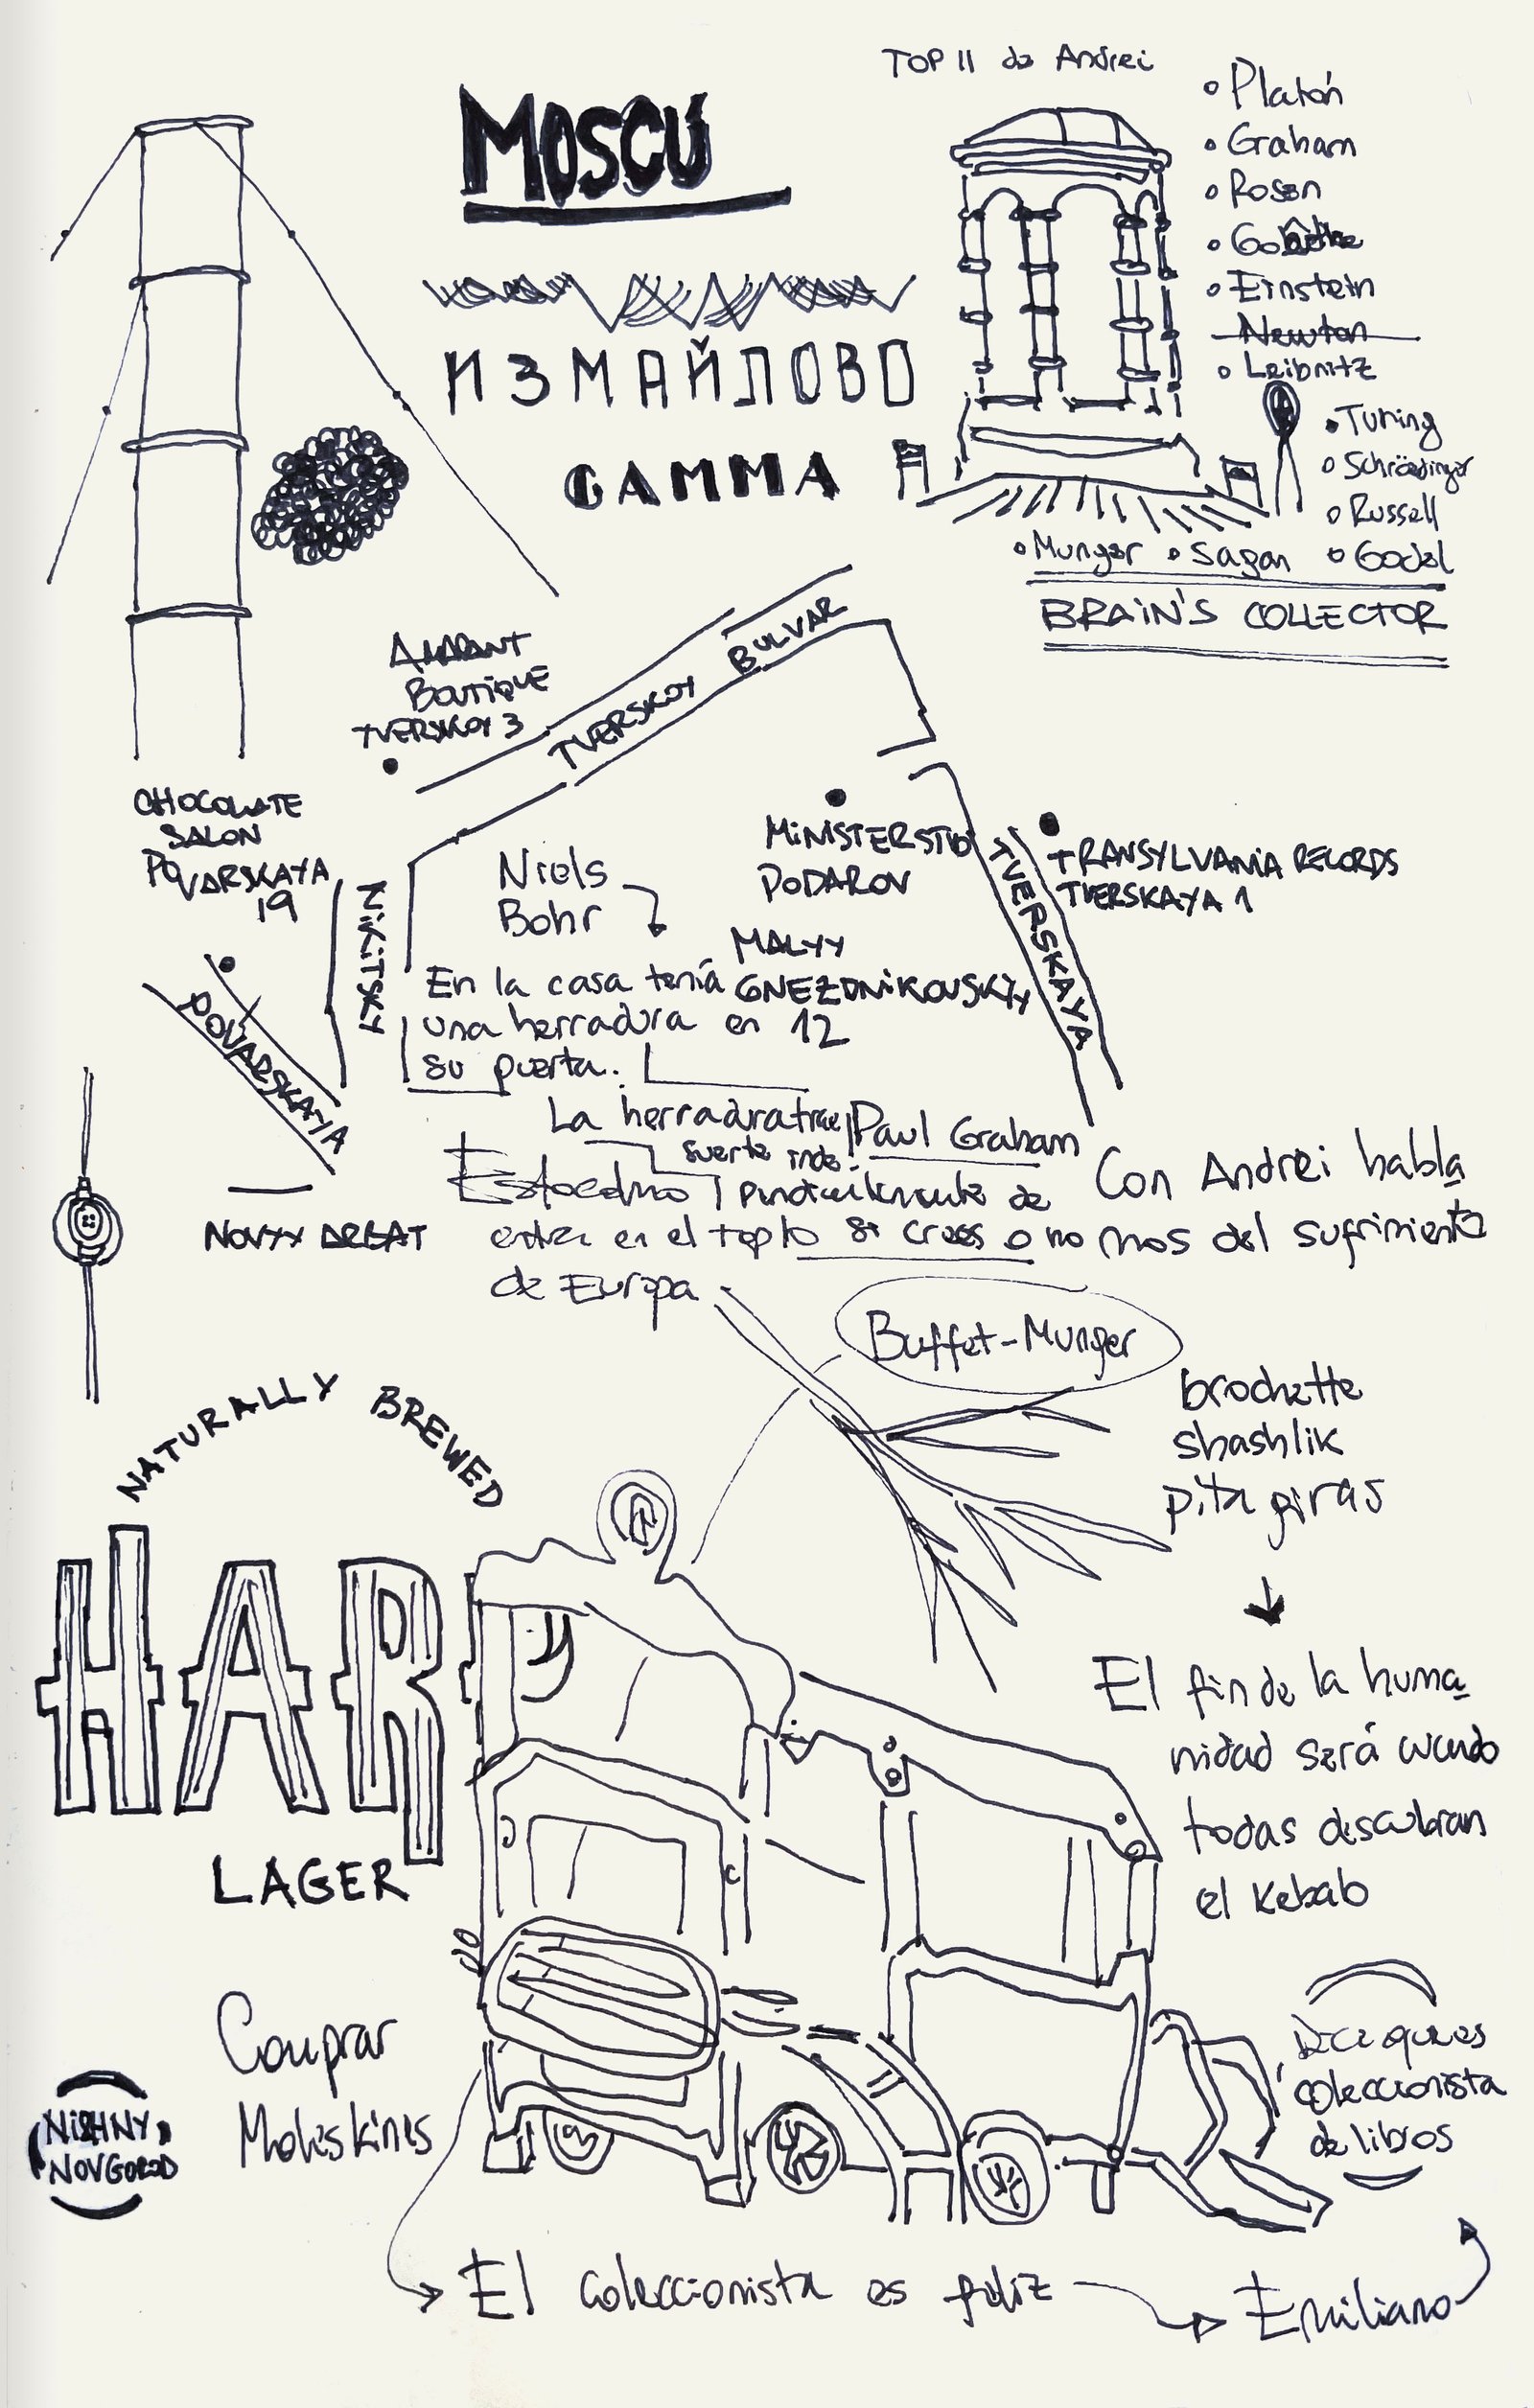 MOSCÚ
ИЗМАЙЛОВО
GAMMA
TOP 11 de Andrei
Platón
Graham
Rosen
Einstein
Newton
Leibnitz
Turing
Schrödinger
Russell
Munger
Sagan
Godel
BRAIN'S COLLECTOR
AMARANT
BOUTIQUE
TVERSKOY 3
TVERSKOY BULVAR
CHOCOLATE
SALON
POVARSKAYA
19
NIKITSKY
POVARSKAYA
NOVYY ARBAT
MINISTERSTVO
PODAROV
MALYY
GNEZDNIKOVSKIY
12
TVERSKAYA
TRANSYLVANIA RECORDS
TVERSKAYA 1
Niels
Bohr
En la casa tenía
una herradura en
su puerta.
La herradura trae
suerte inde
pendientemente de
si crees o no
Paul Graham
Estocolmo
entra en el top 10
de Europa
Con Andrei habla
mos del sufrimiento
Buffet-Munger
brochette
shashlik
pita giras
El fin de la huma
nidad será cuando
todas descubran
el Kebab
NATURALLY BREWED
HARP
LAGER
Comprar
Moleskines
NIZHNY
NOVGOROD
Dice que es
coleccionista
de libros
El coleccionista es feliz
Emiliano